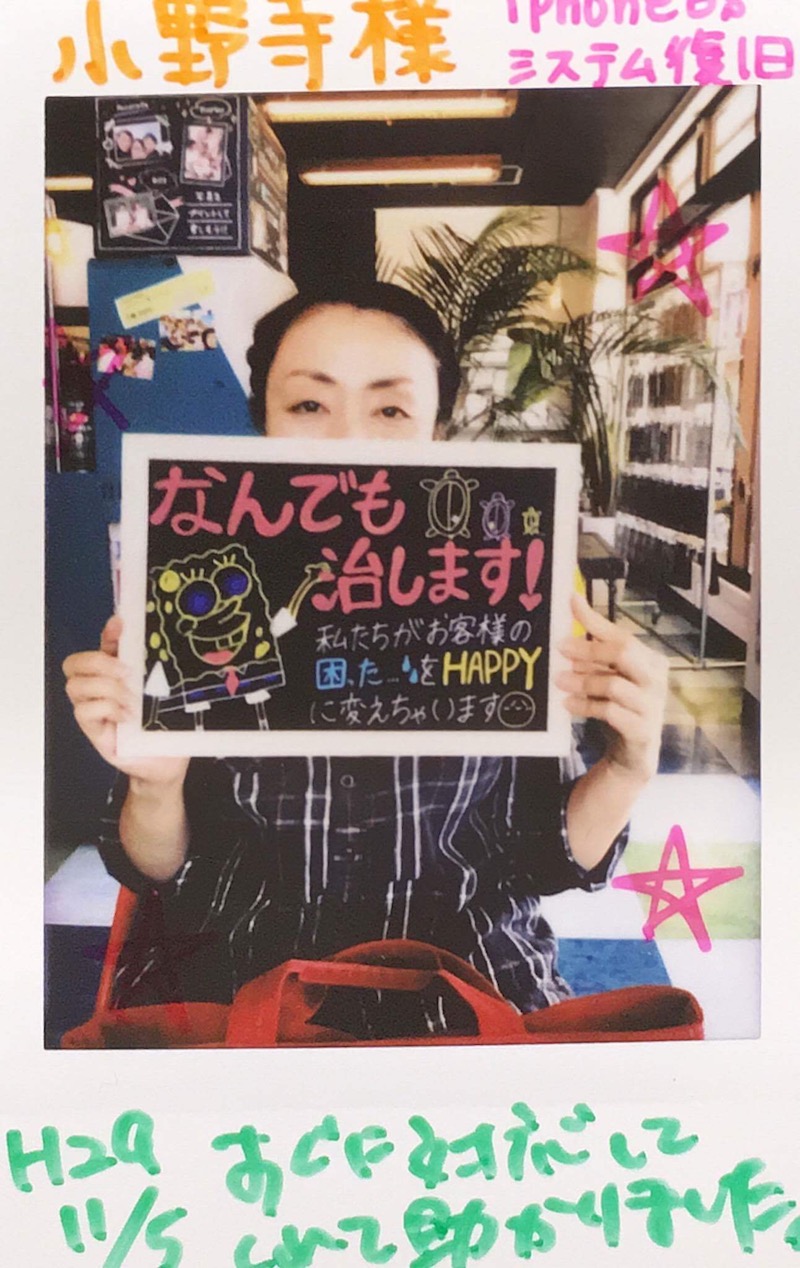 小野寺様
iphone6s
システム復旧
なんでも
治します!
私たちがお客様の
困った...をHAPPY
に変えちゃいます
H29 すぐに対応して
11/5 くれて助かりました。